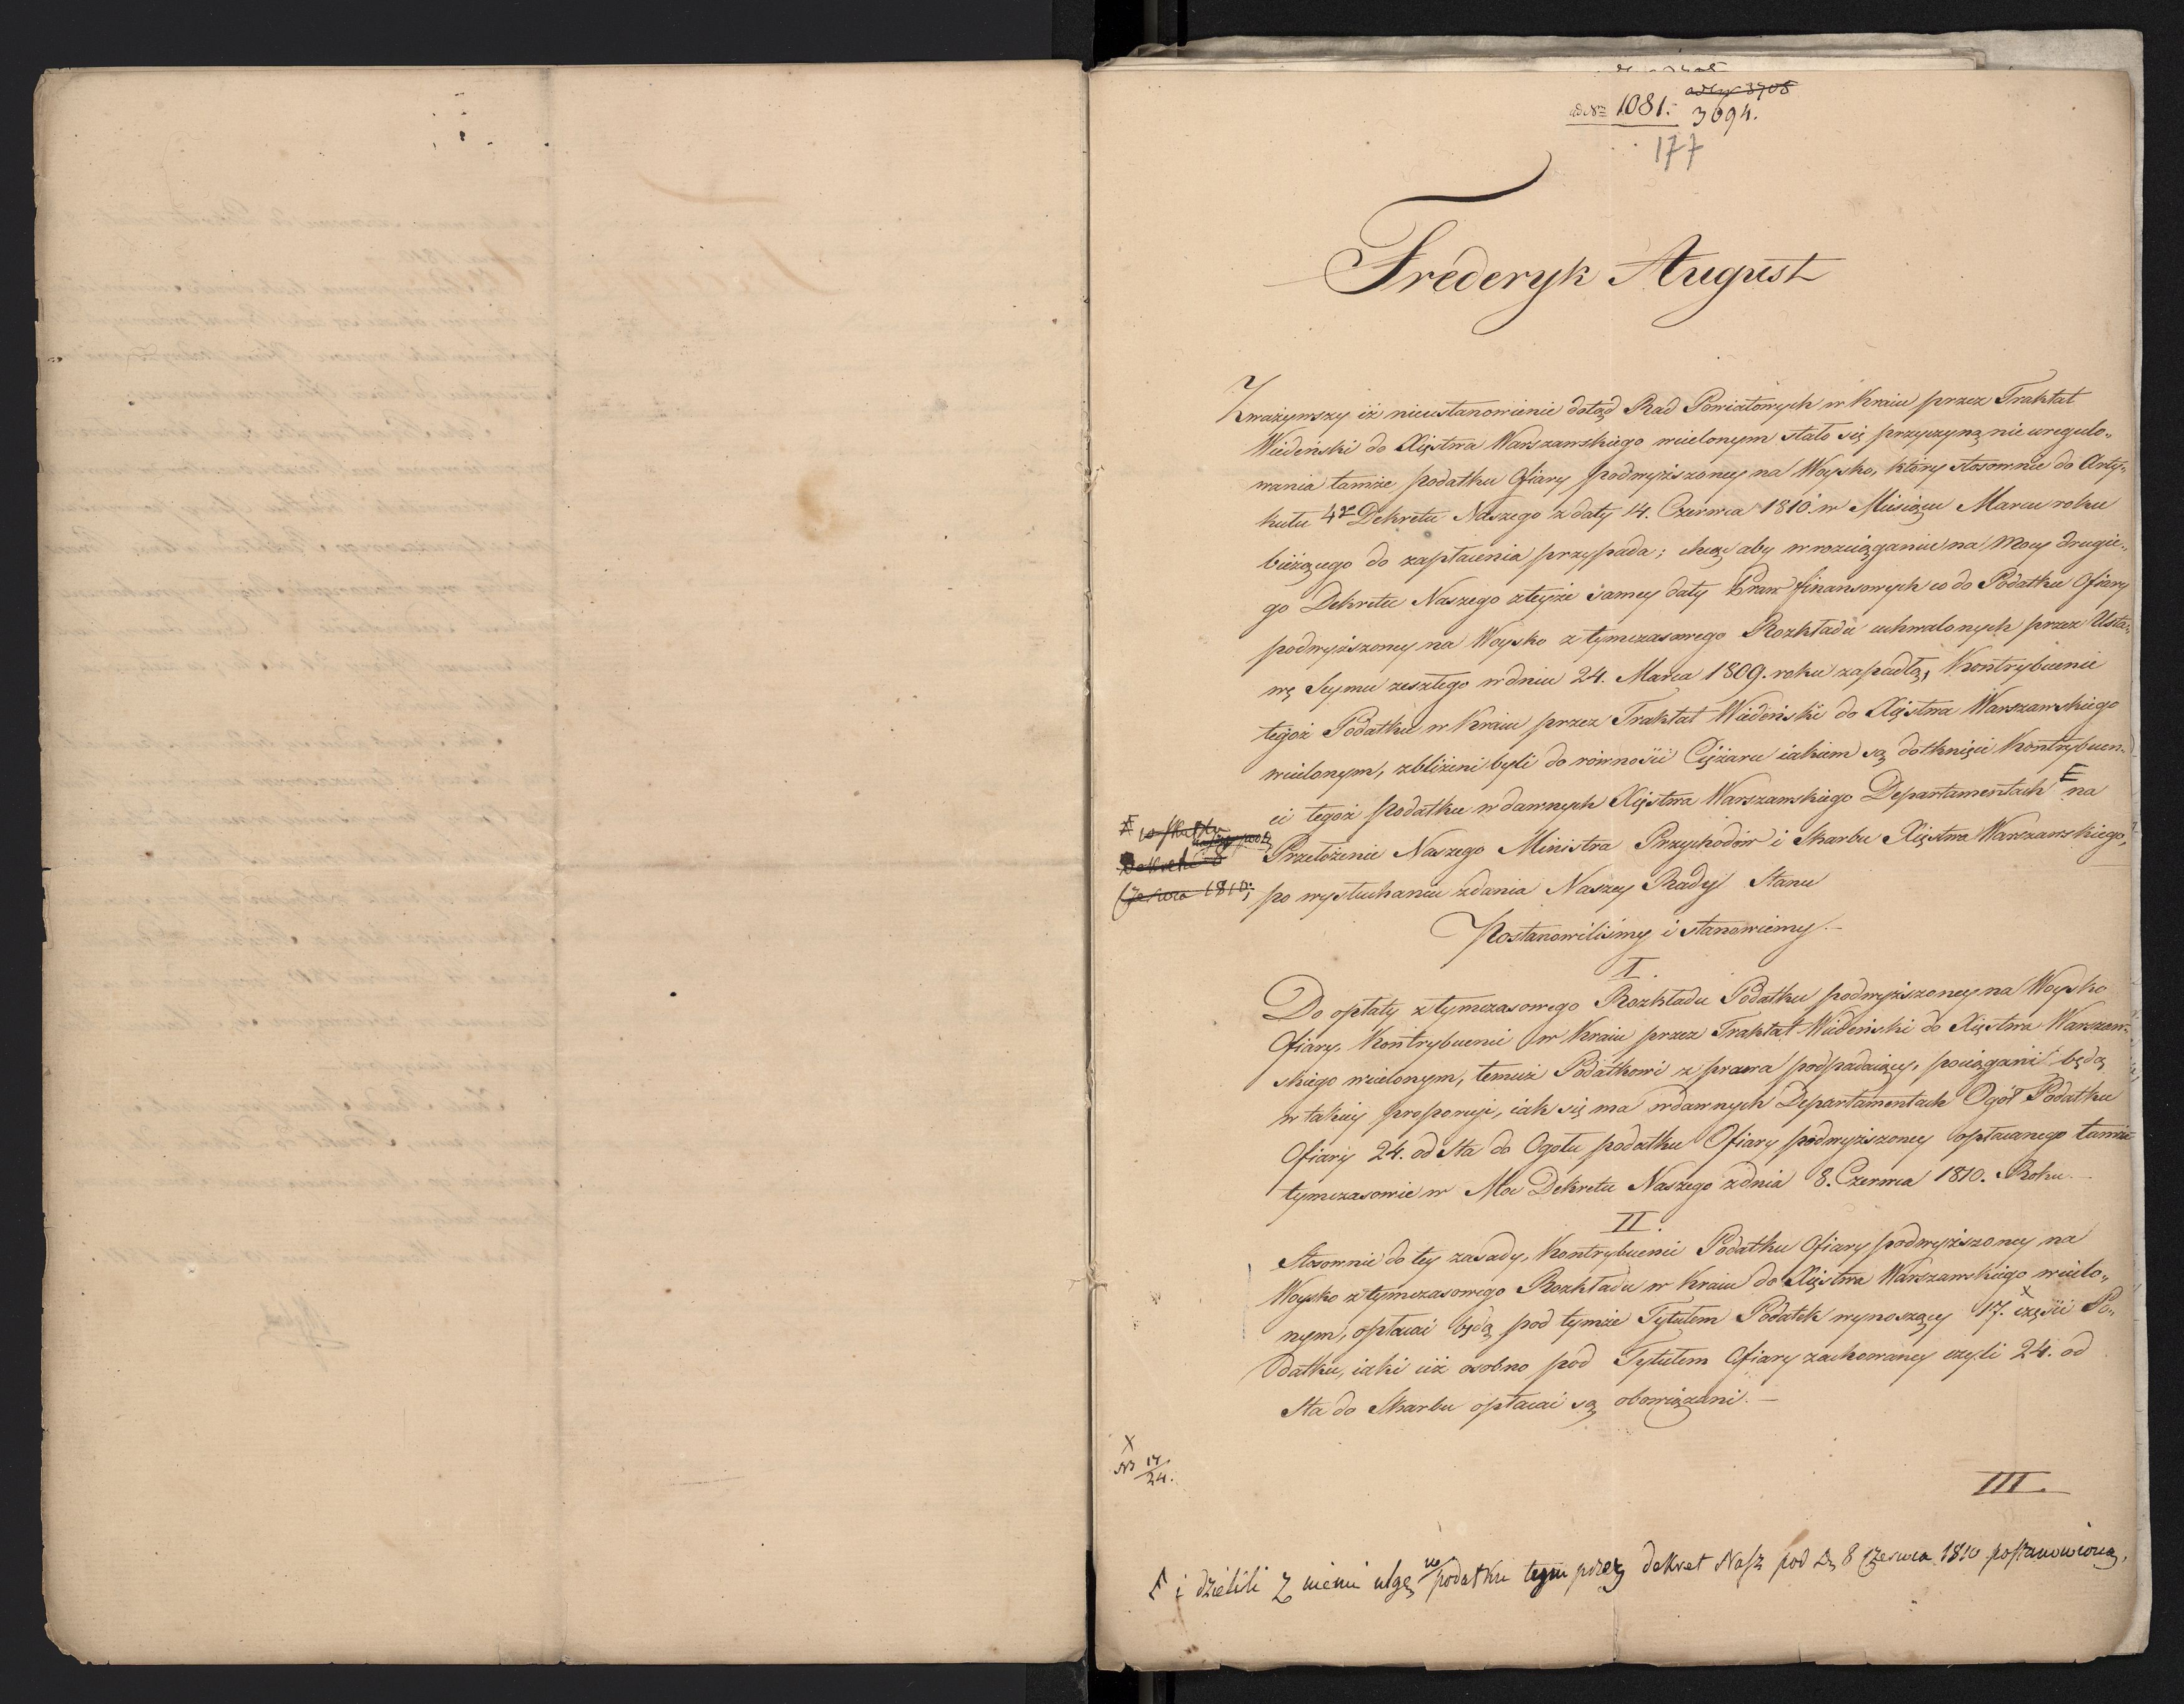 ad Nro 1081. 3694.
177
Frederyk August
Zważywszy iż nieustanowienie dotąd Rad Powiatowych w Kraiu przez Traktat
Wiedeński do Xięstwa Warszawskiego wcielonym stało się przyczyną nieuregulo„
wania tamże podatku Ofiary podwyższoney na Woysko, który stosownie do Arty„
kułu 4go Dekretu Naszego z daty 14. Czerwca 1810. w Miesiącu Marcu roku
bieżącego do zapłacenia przypada; chcąc aby w rozciąganiu na Mocy drugie„
go Dekretu Naszego z teyże samey daty Praw finansowych co do Podatku Ofiary
podwyższoney na Woysko z tymczasowego Rozkładu uchwalonych przez Usta„
wę Seymu zeszłego w dniu 24. Marca 1809. roku zapadłą, Kontrybuenci
tegoż Podatku w Kraiu przez Traktat Wiedeński do Xięstwa Warszawskiego
wcielonym, zbliżeni byli do równości Ciężaru iakiem są dotknięci Kontrybuen„
ci tegoż podatku w dawnych Xięstwa Warszawskiego Departamentach na
Przełożenie Naszego Ministra Przychodów i Skarbu Xięstwa Warszawskiego,
Czerwca 1810; po wysłuchaniu zdania Naszey Rady Stanu
Postanowiliśmy i stanowiemy.—
I.
Do opłaty z tymczasowego Rozkładu Podatku podwyższoney na Woysko
Ofiary, Kontrybuenci w Kraiu przez Traktat Wiedeński do Xięstwa Warszaw„
skiego wcielonym, temuż Podatkowi z prawa podpadaiący, pociągani będą
w takiey proporcyi, iak się ma w dawnych Departamentach Ogół Podatku
Ofiary 24. od Sta do Ogółu podatku Ofiary podwyższoney opłacanego tamże
tymczasowie w Moc Dekretu Naszego z dnia 8. Czerwca 1810. Roku.—
II.
Stosownie do tey zasady, Kontrybuenci Podatku Ofiary podwyższoney na
Woysko z tymczasowego Rozkładu w Kraiu do Xięstwa Warszawskiego wcielo„
nym, opłacać będą pod tymże Tytułem Podatek wynoszący 17. X części Po„
datku, iaki iuż osobno pod Tytułem Ofiary zachowaney czyli 24. od
Sta do Skarbu opłacać są obowiązani.—
X
17/24.
III.
i dzielili z niemi ulgę w podatku tym przez dekret Nasz pod D. 8 Czerwca 1810 postanowioną,